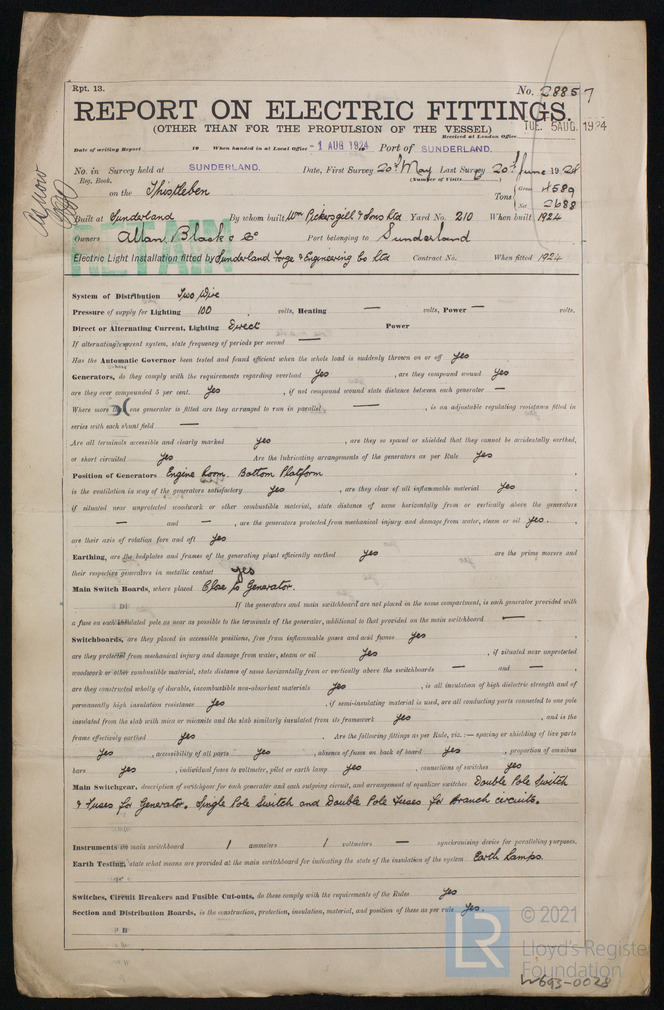 Rpt. 13.
No. 28857
REPORT ON ELECTRIC FITTINGS.
(OTHER THAN FOR THE PROPULSION OF THE VESSEL)
Received at London Office TUE. 5 AUG. 1924
Date of writing Report 19 When handed in at Local Office - 1 AUG 1924 19 Port of SUNDERLAND.
No. in Survey held at SUNDERLAND. Date, First Survey 20th May Last Survey 20th June 1924
Reg. Book. (Number of Visits )
on the Thistleben Tons { Gross 4589
Net 2688
Built at Sunderland By whom built Wm Pickersgill & Sons Ltd Yard No. 210 When built 1924
Owners Allan, Black & Co Port belonging to Sunderland
RETAIN
Electric Light Installation fitted by Sunderland Forge & Engineering Co Ltd Contract No. When fitted 1924
System of Distribution Two Wire
Pressure of supply for Lighting 100 volts, Heating — volts, Power — volts.
Direct or Alternating Current, Lighting Direct Power
If alternating current system, state frequency of periods per second —
Has the Automatic Governor been tested and found efficient when the whole load is suddenly thrown on or off yes
Generators, do they comply with the requirements regarding overload yes , are they compound wound yes
are they over compounded 5 per cent. yes , if not compound wound state distance between each generator —
Where more than one generator is fitted are they arranged to run in parallel — , is an adjustable regulating resistance fitted in
series with each shunt field —
Are all terminals accessible and clearly marked yes , are they so spaced or shielded that they cannot be accidentally earthed,
or short circuited yes Are the lubricating arrangements of the generators as per Rule yes
Position of Generators Engine Room. Bottom Platform
is the ventilation in way of the generators satisfactory yes , are they clear of all inflammable material yes ,
if situated near unprotected woodwork or other combustible material, state distance of same horizontally from or vertically above the generators
— and — , are the generators protected from mechanical injury and damage from water, steam or oil yes. ,
are their axis of rotation fore and aft yes
Earthing, are the bedplates and frames of the generating plant efficiently earthed yes are the prime movers and
their respective generators in metallic contact yes
Main Switch Boards, where placed Close to Generator.
If the generators and main switchboard are not placed in the same compartment, is each generator provided with
a fuse on each insulated pole as near as possible to the terminals of the generator, additional to that provided on the main switchboard —
Switchboards, are they placed in accessible positions, free from inflammable gases and acid fumes yes ,
are they protected from mechanical injury and damage from water, steam or oil yes , if situated near unprotected
woodwork or other combustible material, state distance of same horizontally from or vertically above the switchboards — and — ,
are they constructed wholly of durable, incombustible non-absorbent materials yes , is all insulation of high dielectric strength and of
permanently high insulation resistance yes , if semi-insulating material is used, are all conducting parts connected to one pole
insulated from the slab with mica or micanite and the slab similarly insulated from its framework yes , and is the
frame effectively earthed yes . Are the following fittings as per Rule, viz. :— spacing or shielding of live parts
yes , accessibility of all parts yes , absence of fuses on back of board yes , proportion of omnibus
bars yes , individual fuses to voltmeter, pilot or earth lamp yes , connections of switches yes
Main Switchgear, description of switchgear for each generator and each outgoing circuit, and arrangement of equalizer switches Double Pole Switch
& Fuses for Generator. Single Pole Switch and Double Pole Fuses for Branch circuits.
Instruments on main switchboard 1 ammeters 1 voltmeters — synchronising device for paralleling purposes.
Earth Testing, state what means are provided at the main switchboard for indicating the state of the insulation of the system Earth Lamps.
Switches, Circuit Breakers and Fusible Cut-outs, do these comply with the requirements of the Rules yes
Section and Distribution Boards, is the construction, protection, insulation, material, and position of these as per rule yes.
© 2021
LR
Lloyd's Register
Foundation
W693-0028